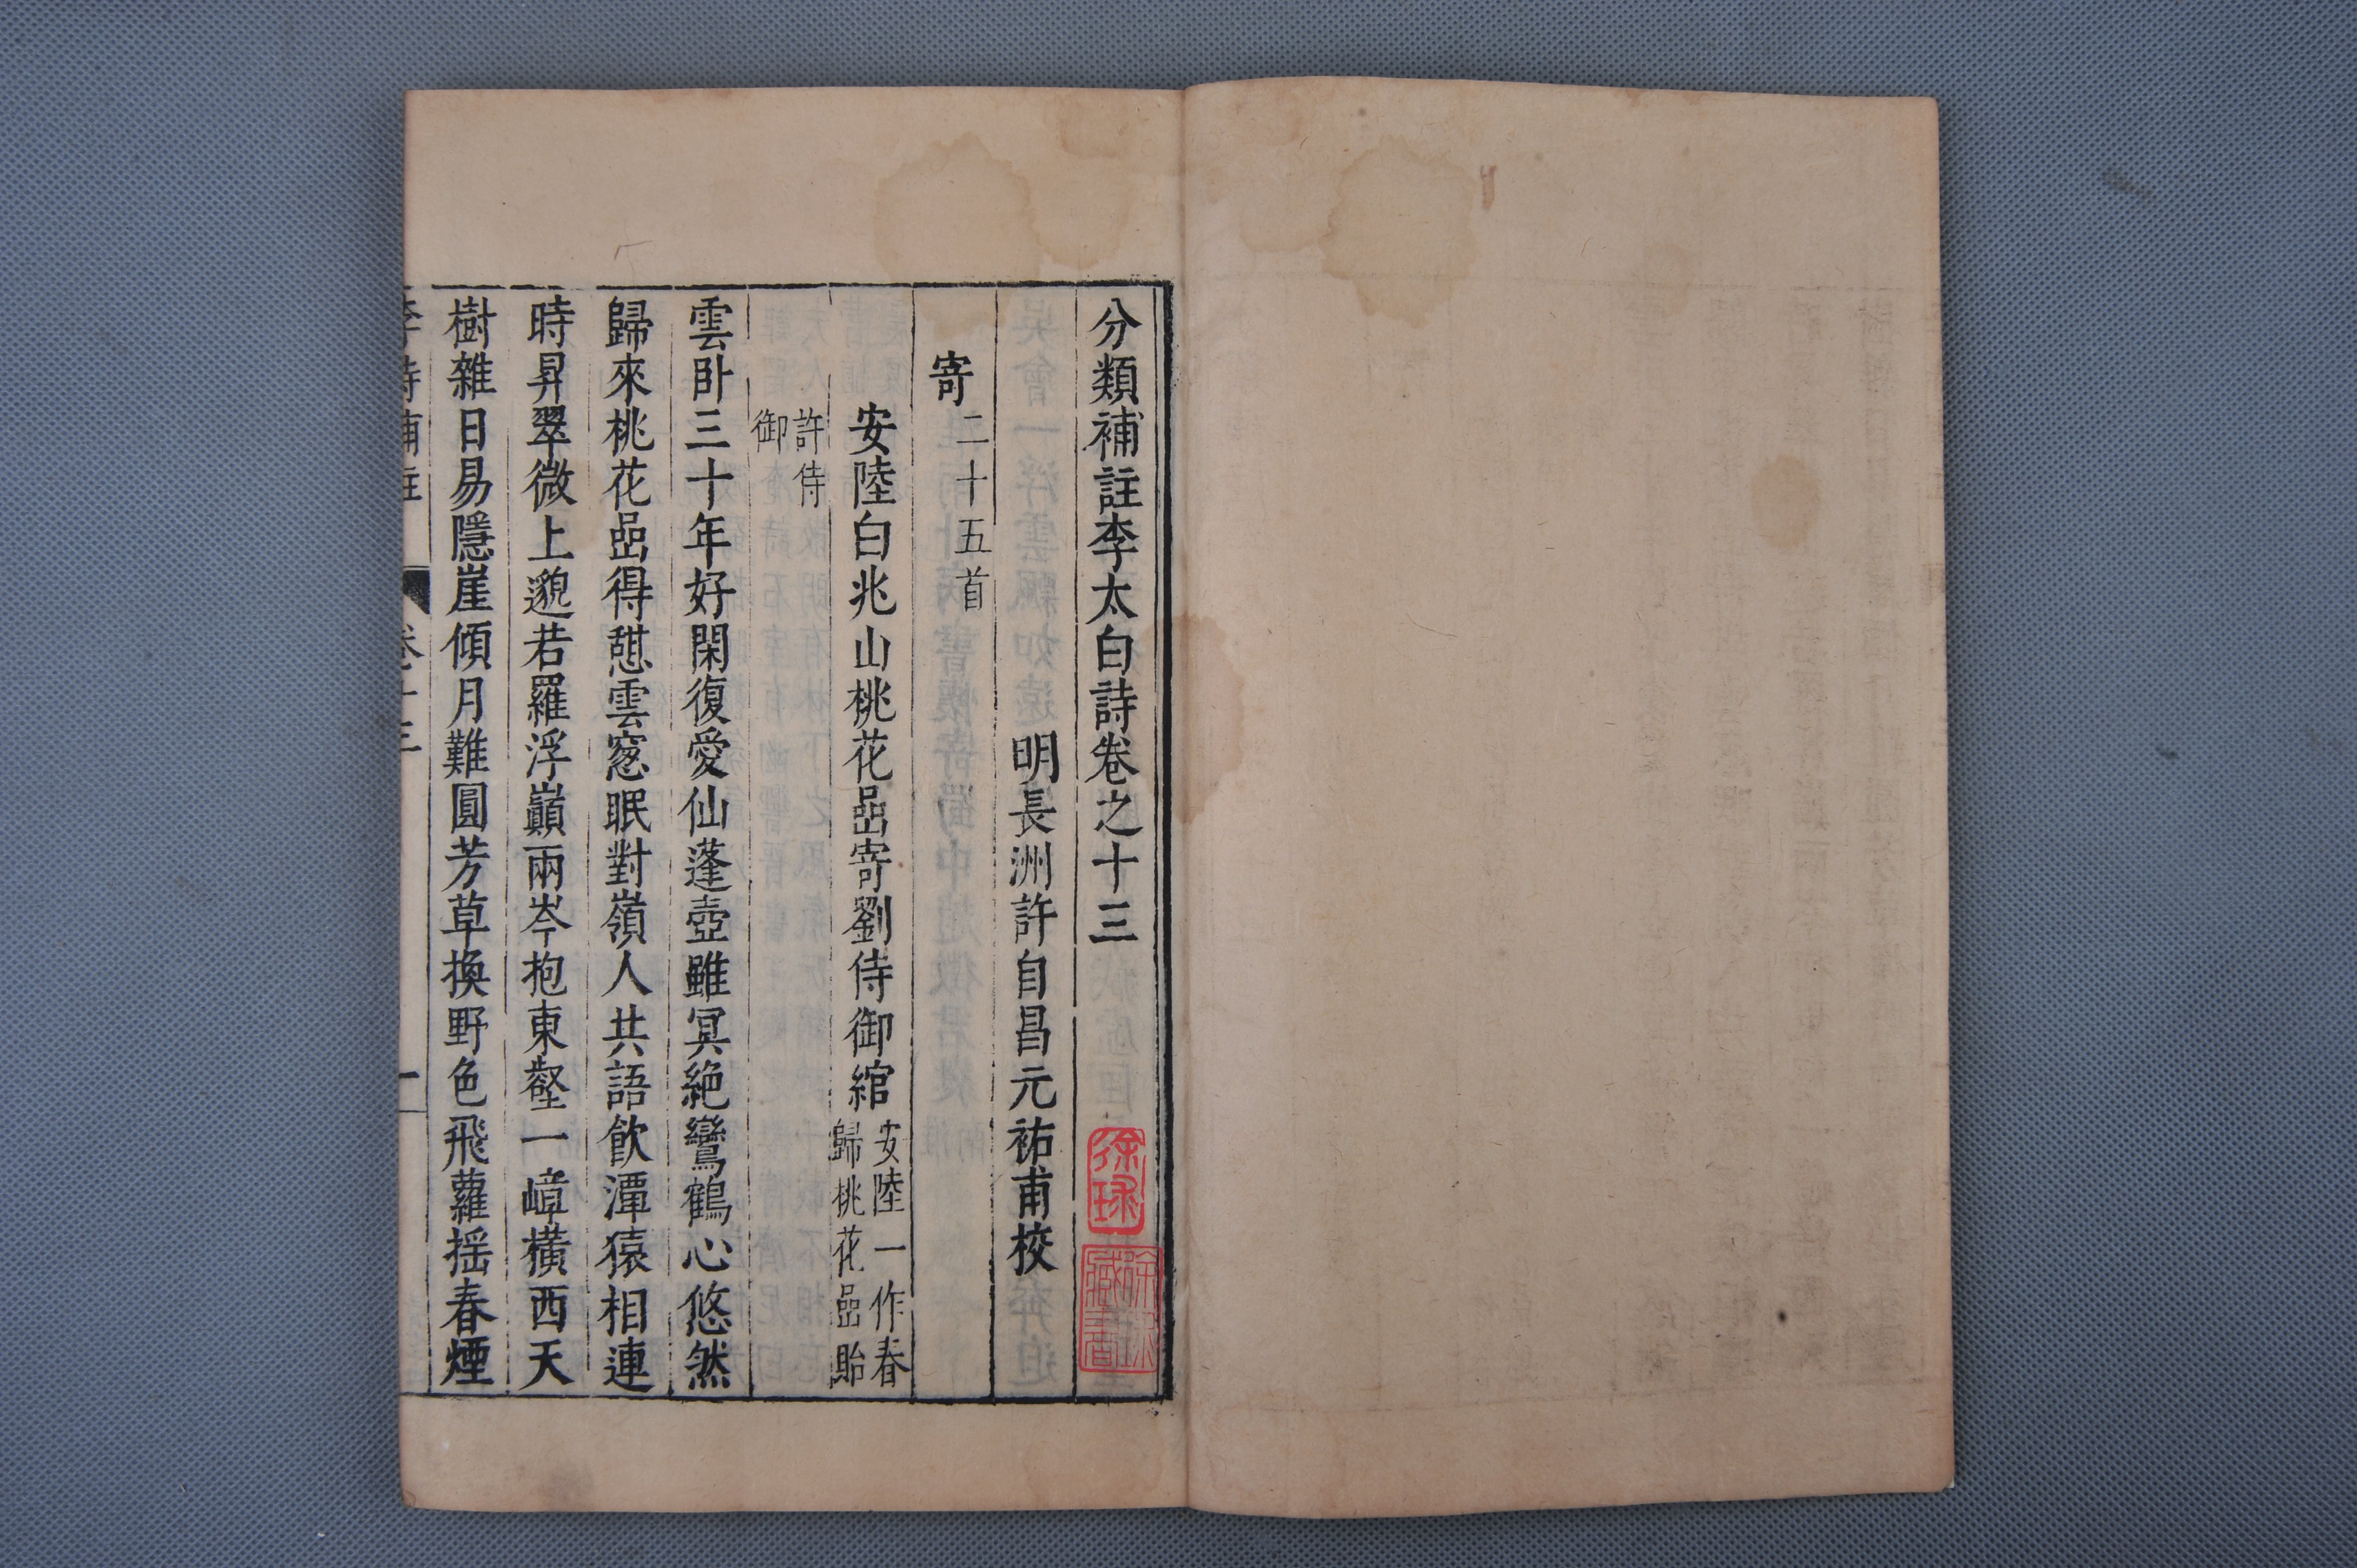 分類補註李太白詩卷之十三
明長洲許自昌元祐甫校
寄二十五首
安陸白兆山桃花嵒寄劉侍御綰安陸一作春
歸桃花嵒貽
許侍
御
雲卧三十年好閑復愛仙蓬壺雖冥絶鸞鶴心悠然
歸來桃花嵒得憩雲窓眠對嶺人共語飲潭猿相連
時昇翠微上邈若羅浮巔兩岑抱東壑一嶂橫西天
樹雜日易隱崖傾月難圓芳草換野色飛蘿揺春煙
李詩補註
卷十三
一
徐球
徐球藏書